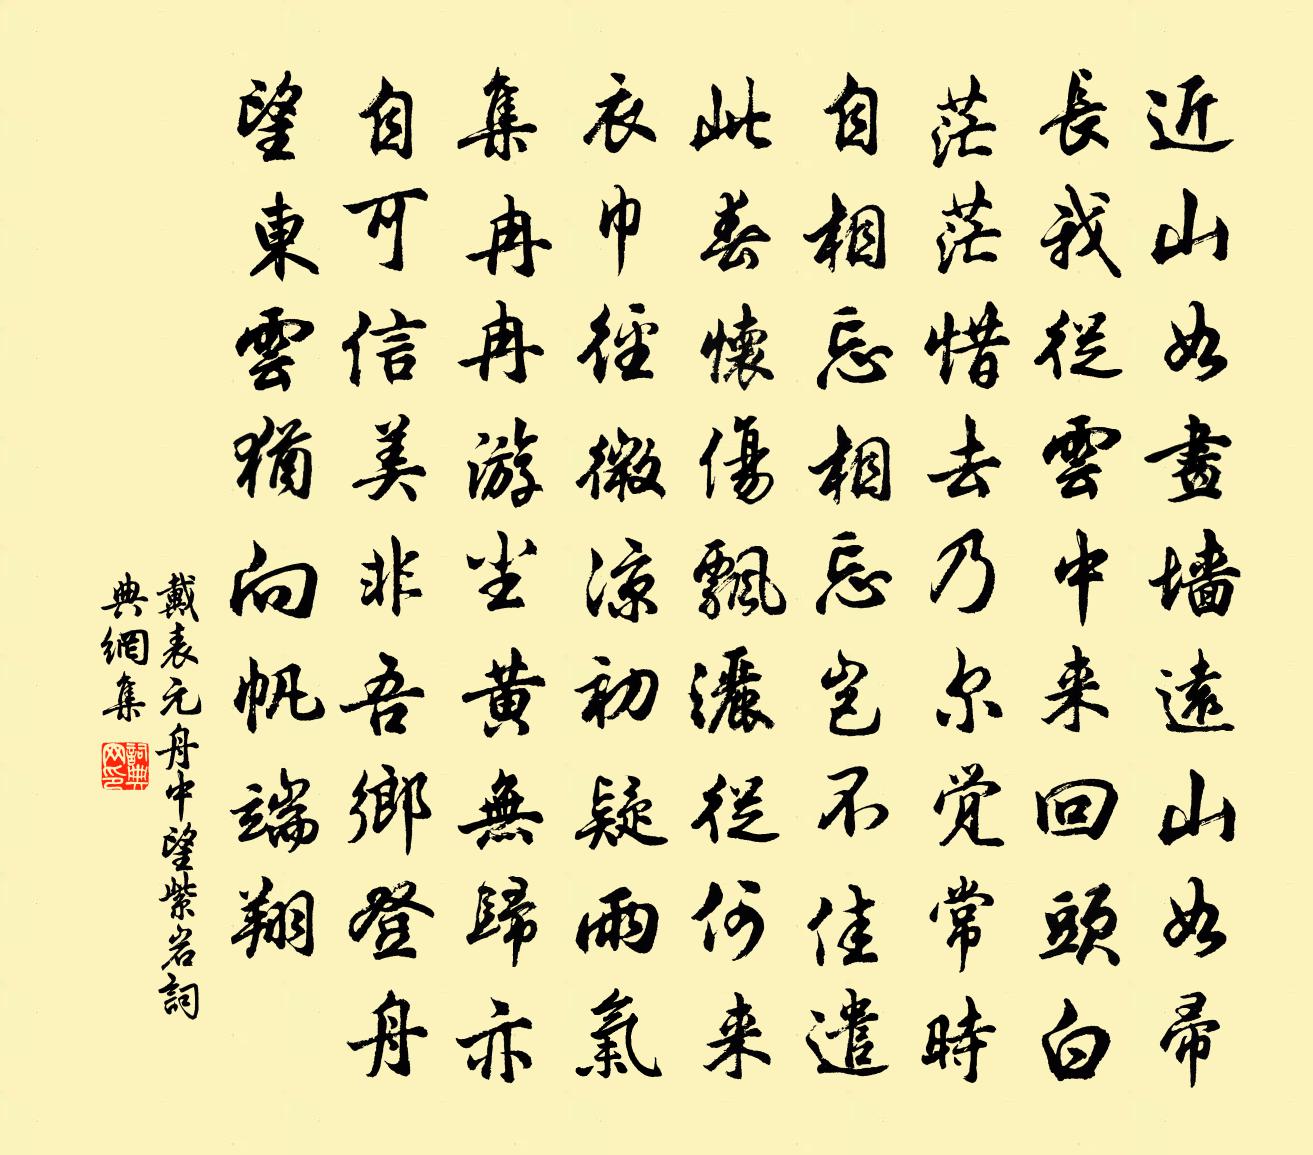 近山如畫墻遠山如帚
長我從雲中来回頭白
茫茫惜去乃尔覚常時
自相忘相忘豈不佳遣
此春懷傷飄灑從何来
衣巾徑微涼初疑雨氣
集冉冉游坐黄無歸亦
自可信美非吾鄉登舟
望東雲猶向帆端翔
戴表元舟中望紫岩詞
典網集
詞典网印